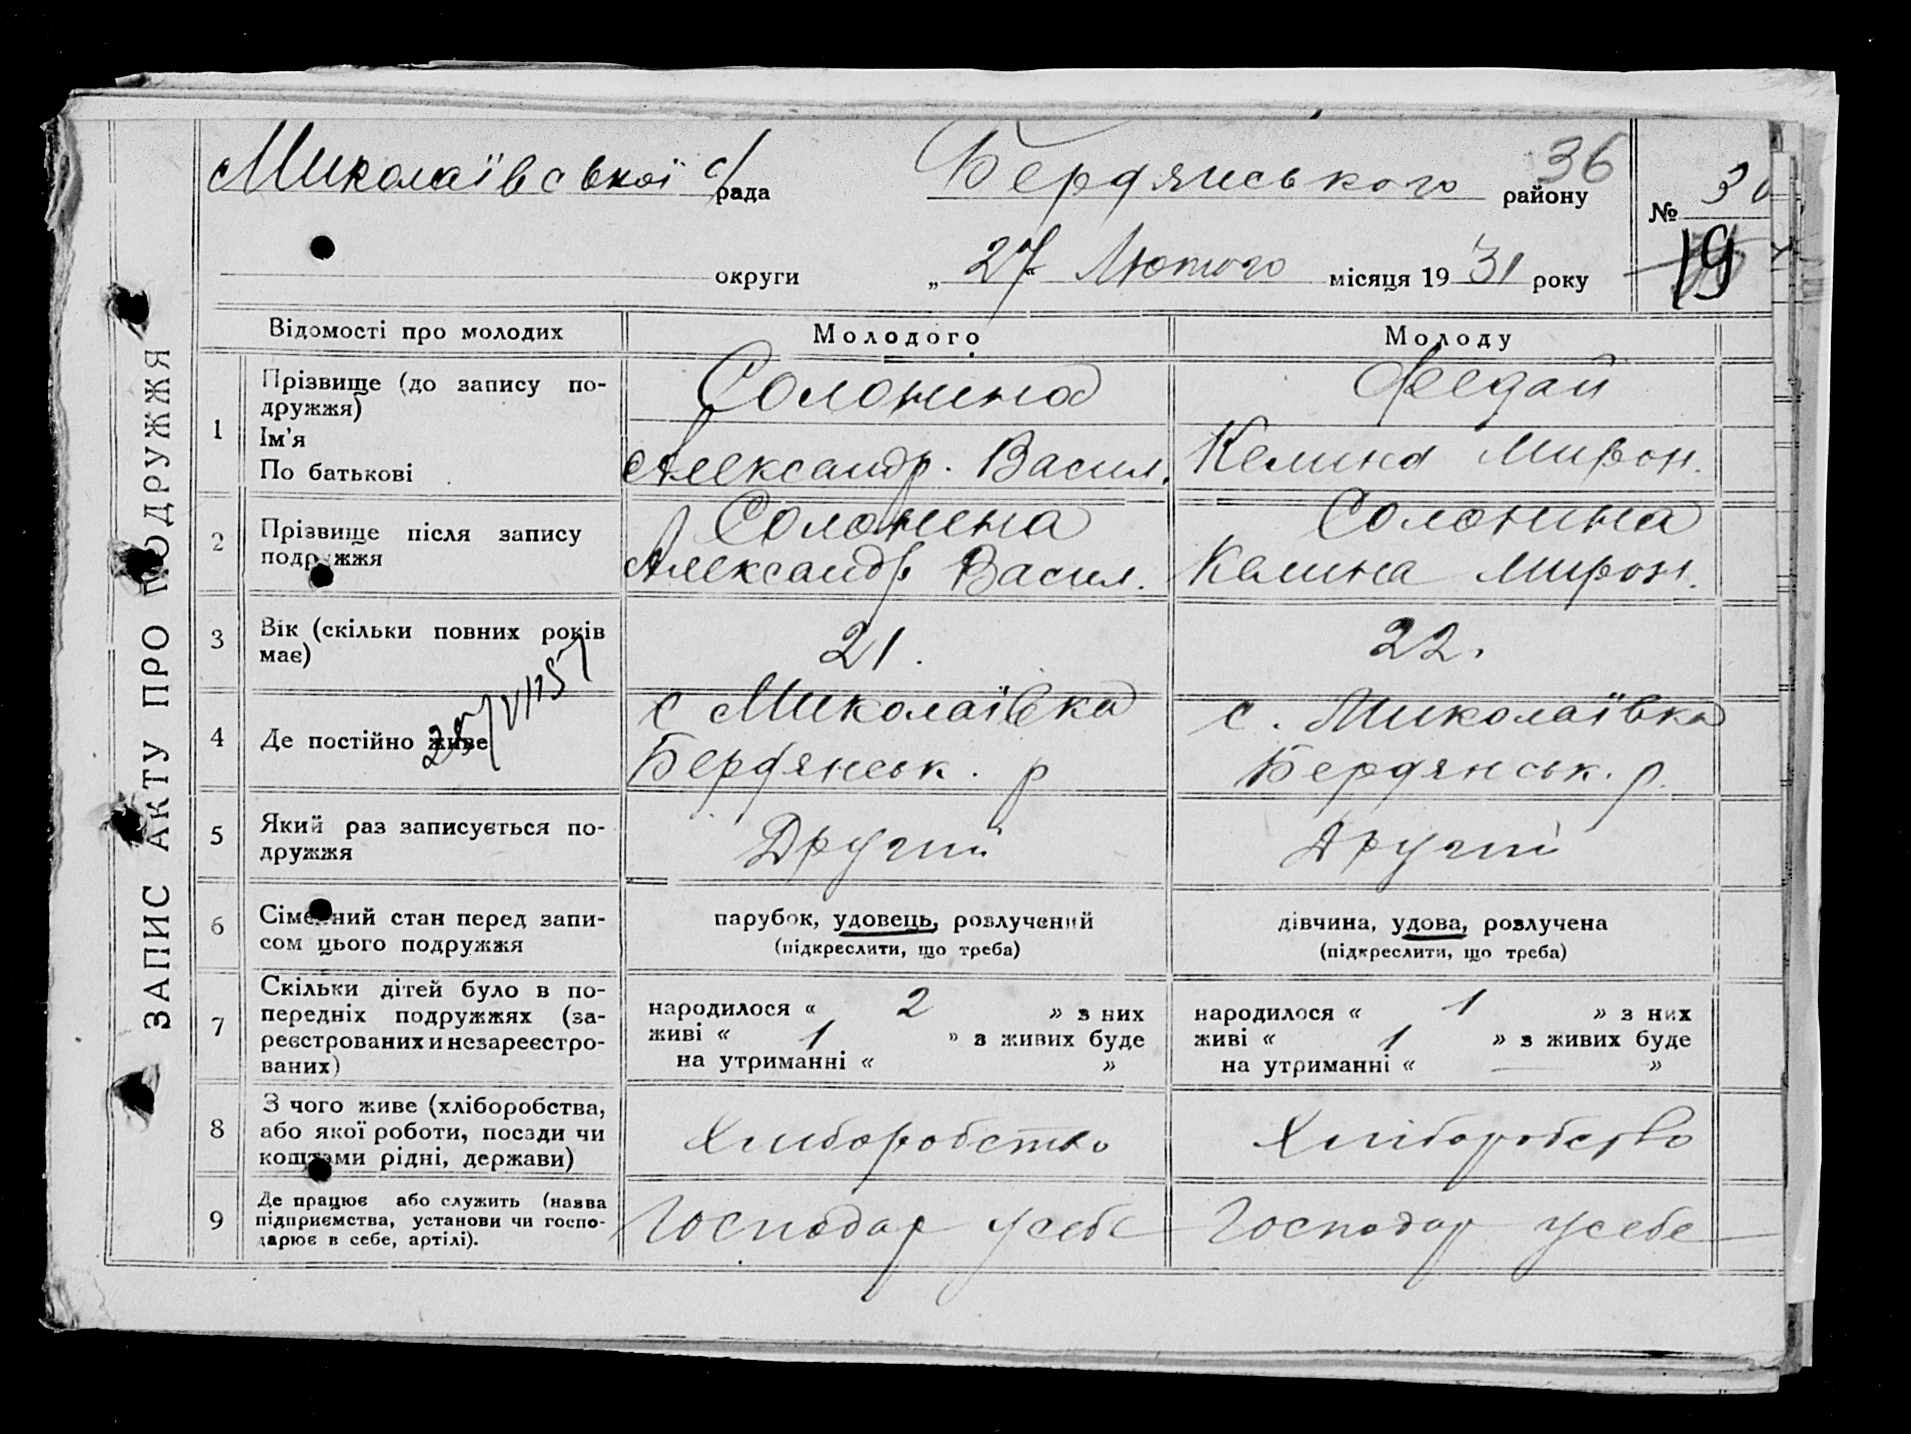 ЗАПИС АКТУ ПРО ПОДРУЖЖЯ
Миколаївської с/рада
Бердянського району
36
№ 30
19
округи
„27“ Лютого місяця 1931 року
Відомості про молодих
Молодого
Молоду
1
Прізвище (до запису по-
дружжя)
Ім'я
По батькові
Солонина
Александр. Васил.
Федай
Келина Мирон.
2
Прізвище після запису
подружжя
Солонена
Александр Васил.
Солонина
Келина Мирон.
3
Вік (скільки повних років
має)
21.
22.
4
Де постійно живе
с Миколаївка
Бердянськ. р
с. Миколаївка
Бердянськ. р.
5
Який раз записується по-
дружжя
Другий
Другий
6
Сімейний стан перед запи-
сом цього подружжя
парубок, удовець, розлучений
(підкреслити, що треба)
дівчина, удова, розлучена
(підкреслити, що треба)
7
Скільки дітей було в по-
передніх подружжях (за-
реєстрованих и незареєстро-
ваних)
народилося « 2 » з них
живі « 1 » з живих буде
на утриманні « »
народилося « 1 » з них
живі « 1 » з живих буде
на утриманні « — »
8
З чого живе (хліборобства,
або якої роботи, посади чи
коштами рідні, держави)
Хліборобство
Хліборобство
9
Де працює або служить (назва
підприємства, установи чи госпо-
дарює в себе, артілі).
Господар усебе
Господар усебе